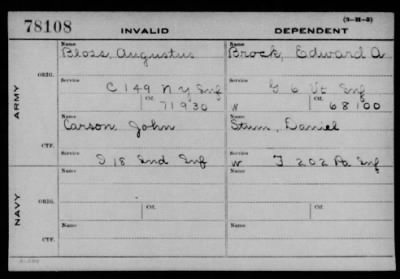 78108 INVALID DEPENDENT (3-21-3)
Name Name
Bloss, Augustus Brock, Edward A
ORIG.
Service Service
C 149 N Y Inf G 6 Vt Inf
Ctf. Ctf.
71930 W 68100
ARMY
Name Name
Carson, John Stum, Daniel
CTF.
Service Service
D 18 Ind Inf W I 202 Pa Inf
Name Name
ORIG.
Service Ctf. Service Ctf.
NAVY
Name Name
CTF.
Service Service